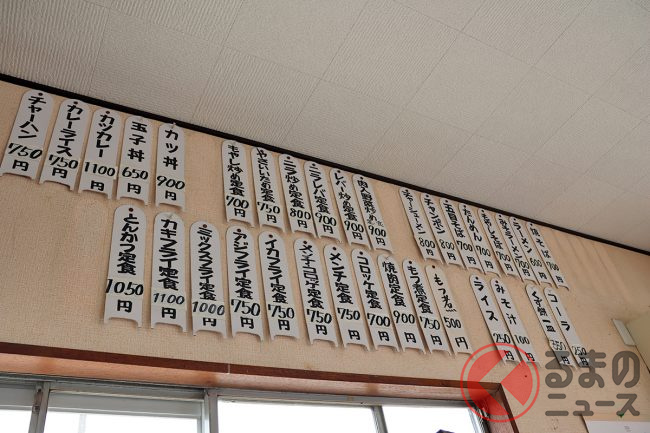 カツ丼 900円
玉子丼 650円
カツカレー 1100円
カレーライス 750円
チャーハン 750円
肉入野菜炒め 900円
レバー炒め定食 900円
ニラレバ定食 900円
ニラ炒め定食 800円
やさいいため定食 750円
モヤシ炒め定食 700円
焼そば 700円
ラーメン 600円
もやしそば 700円
たんめん 700円
五目そば 800円
チャンポン 800円
チャーシューメン 800円
もつ煮 500円
もつ煮定食 750円
焼肉定食 900円
コロッケ定食 700円
メンチ定食 750円
メンチコロッケ定食 750円
イカフライ定食 750円
アジフライ定食 750円
ミックスフライ定食 1000円
カキフライ定食 1100円
とんかつ定食 1050円
コーラ 250円
みそ汁 100円
ライス 250円
くるまのニュース